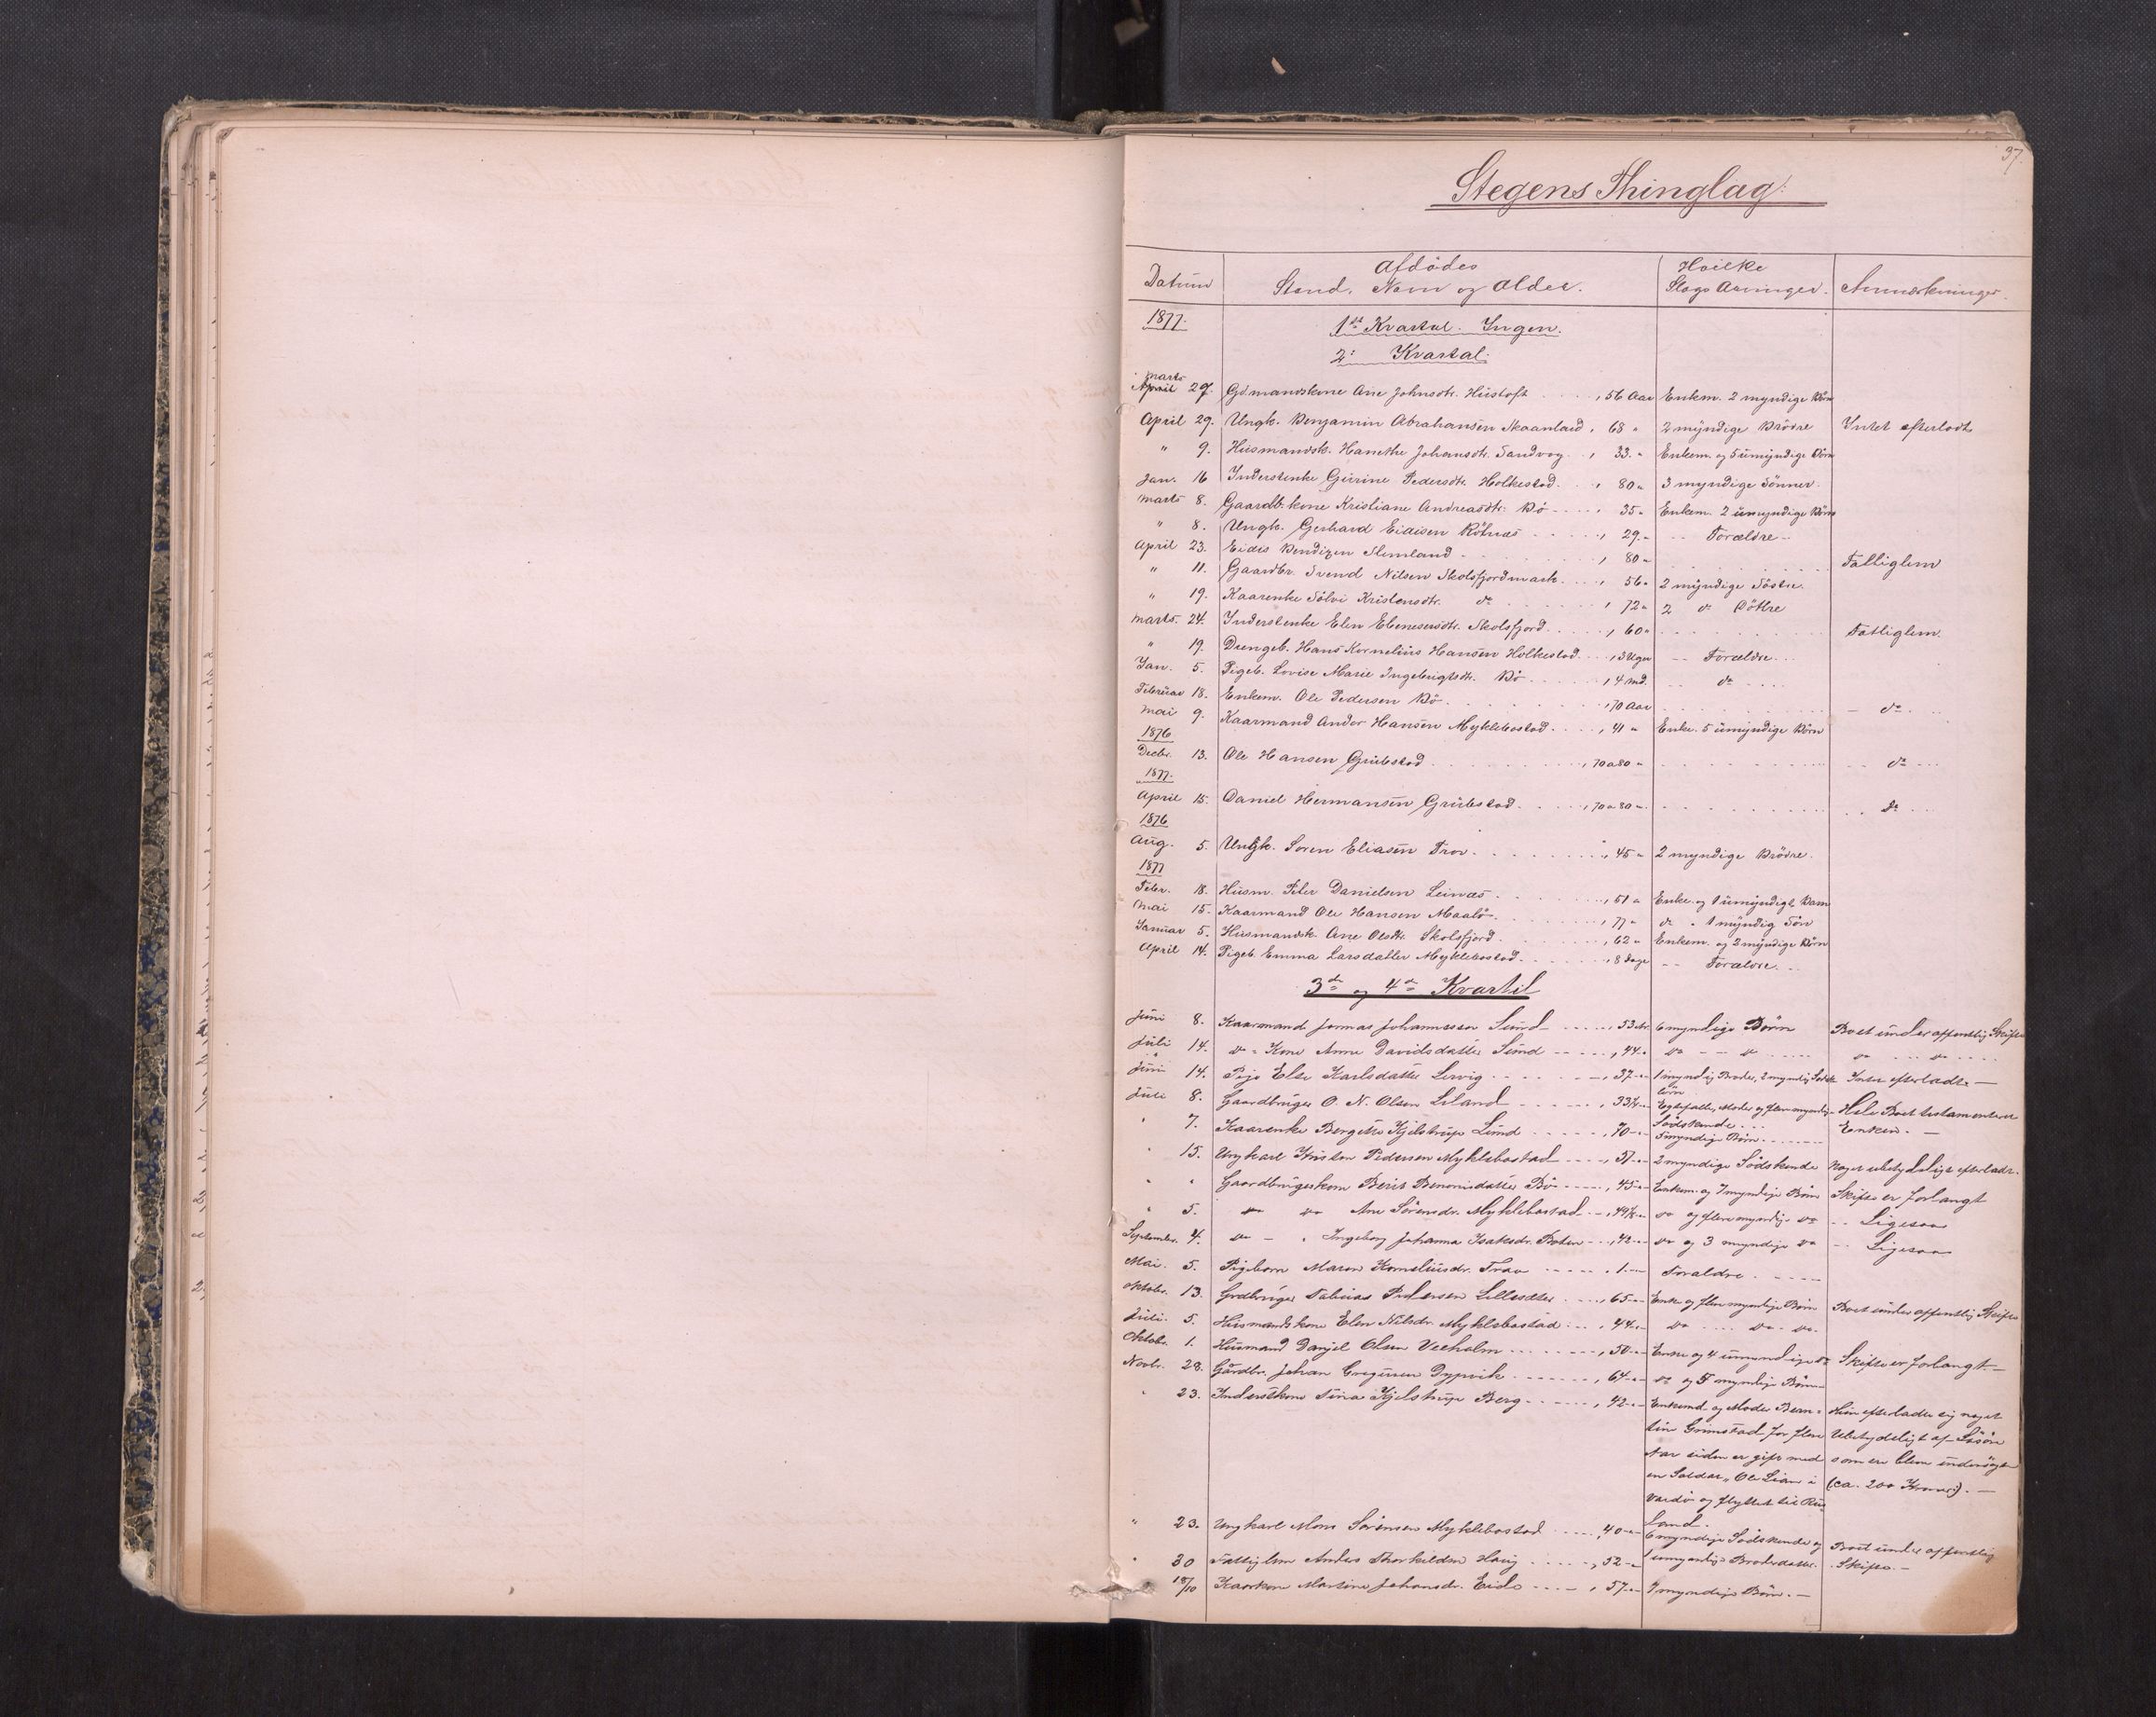 37.
Stegens Thinglag.
Datum Afdødes Stand, Navn og Alder. Hvilke Slags Arvinger. Anmærkninger.
1877. 1ste Kvartal. Ingen.
2. Kvartal.
Marts 27. Gdmandskone Ane Johnsdtr. Hustoft , 56 Aar Enkem. 2 myndige Børn
April 29. Ungk. Benjamin Abrahamsen Skaanland , 68 " 2 myndige Brødre Intet efterladt
" 9. Husmandsk. Hanethe Johansdtr. Sandvog , 33 " Enkem. og 5 umyndige Børn
Jan. 16 Inderstenke Gurine Pedersdtr. Holkestad , 80 " 3 myndige Sønner.
Marts 8. Gaardb. kone Kristiane Andreasdtr. Bø , 35 " Enkem. 2 umyndige Børn
" 8. Ungk. Gerhard Eidisen Røtnæs , 29 " Forældre
April 23. Eidis Bendixen Slemland , 80 " Fattiglem
" 11. Gaardbr. Svend Nilsen Skolsfjordmark , 56 " 2 myndige Søstre.
" 19. Kaarenke Sølvi Kristensdtr. do , 72 " 2 do Døttre
Marts. 24. Inderstenke Elen Ebenesersdtr. Skolsfjord , 60 " Fattiglem.
" 19. Drengeb. Hans Kornelius Hansen Holkestad , 3 Uger Forældre
Jan. 5. Pigeb. Lovise Marie Ingebrigtsdtr. Bø , 4 Md. do
Februar 18. Enkem. Ole Pedersen Bø , 70 Aar do
Mai 9. Kaarmand Andor Hansen Myklebostad , 41 " Enke. 5 umyndige Børn
1876
Decbr. 13. Ole Hansen Grubstad , 70 a 80 " do
1877.
April 15. Daniel Hermansen Grubstad , 70 a 80 " do
1876
Aug. 5. Ungk. Soren Eliasen Frov , 45 " 2 myndige Brødre.
1877
Febr. 18. Husm. Peter Danielsen Leinæs , 51 " Enke. og 1 umyndigt Barn
Mai 15. Kaarmand Ole Hansen Maalø , 77 " do " 1 myndig Søn
Januar 5. Husmandsk. Ane Olsdtr. Skolsfjord , 62 " Enkem. og 2 myndige Børn
April 14. Pigeb. Emma Larsdatter Myklebostad , 8 Dage Forældre
3de og 4de Kvartal
Juni 8. Kaarmand Jonas Johannessen Sund , 53 Ar. 6 myndige Børn Boet under offentlig Skifte
Juli 14. do " Kone Anne Davidsdatter Sund , 44 " do do do do
Juni 14. Pige Else Karlsdatter Lervig , 37 " 1 myndig Broder, 2 myndig Sødsk. børn Intet efterladt
Juli 8. Gaardbruger O. N. Olsen Leland , 33½ " Egtefælle, Moder og flere myndige Sødskende Hele Boet testamenteret Enken.
" 7. Kaarenke Bergette Kjelstrup Lund , 70 " 5 myndige Børn
" 15. Ungkarl Kristen Pedersen Myklebostad , 51 " 2 myndige Sødskende Noget ubetydeligt efterladt.
" " Gaardbrugerkone Berit Benonisdatter Bø , 45 " Enkem. og 7 myndige Børn Skifte er forlangt
" 5. do do Ane Sørensdr. Myklebostad , 49½ " do og flere myndige do Ligesaa
September. 4. do " Ingeborg Johanna Isaksdr. Boten , 42 " do og 3 myndige do Ligesaa
Mai. 5. Pigebarn Maren Korneliusdr. Frav , 1 " Forældre.
Oktober. 13. Grdbruger Tobias Pedersen , 65 " Enke og flere myndige Børn Boet under offentlig Skifte
Juli. 5. Husmandskone Elen Nilsdr. Myklebostad , 44 " do do do
Oktobr. 1. Husmand Danjel Olsen Veeholm , 50 " Enke og 4 umyndige do Skifte er forlangt
Novbr. 28. Gårdbr. Johan Gregersen Dypvik , 64 " do og 5 myndige Børn
" 23. Inderstkone Sina Kjelstrup Berg , 42 " Enkemd og Moder Beren- Hun efterlader sig noget
tin Grimstad for flere Ubetydeligt af Løsøre
Aar siden er gift med som ere blevne undersøgte
en Soldat " Ole Lian i (ca. 200 Kroner).
Vardø og flyttet til Rus-
land.
" 23. Ungkarl Mons Sørensen Myklebostad , 40 " 6 myndige Sødskende og Boet under offentlig
" 30 Fattiglem Anders Thorkildsen Haug , 52 " 1 umyndig Broderdatter. Skifte.
18/10 Kaarkone Martine Johansdr. Eide , 57 " 7 myndige Børn.